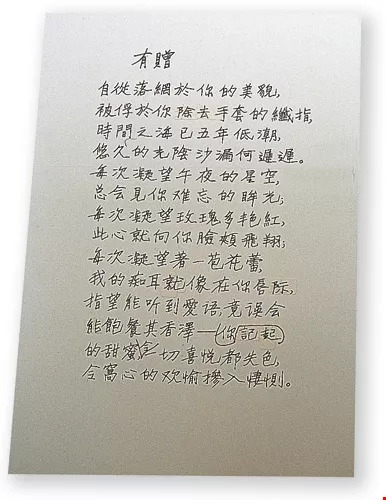 有贈
自從落網於你的美貌,
被俘於你除去手套的纖指,
時間之海已五年低潮,
悠久的光陰沙漏何遲遲。
每次凝望午夜的星空,
总会見你难忘的眸光;
每次凝望玫瑰多艳紅,
此心就向你臉頰飛翔;
每次凝望著一苞花蕾,
我的痴耳就像在你唇际,
指望能听到愛语,竟误会
能飽餐其香澤——你記起
的甜蜜一切喜悅都失色,
令窩心的欢愉摻入悽惻。